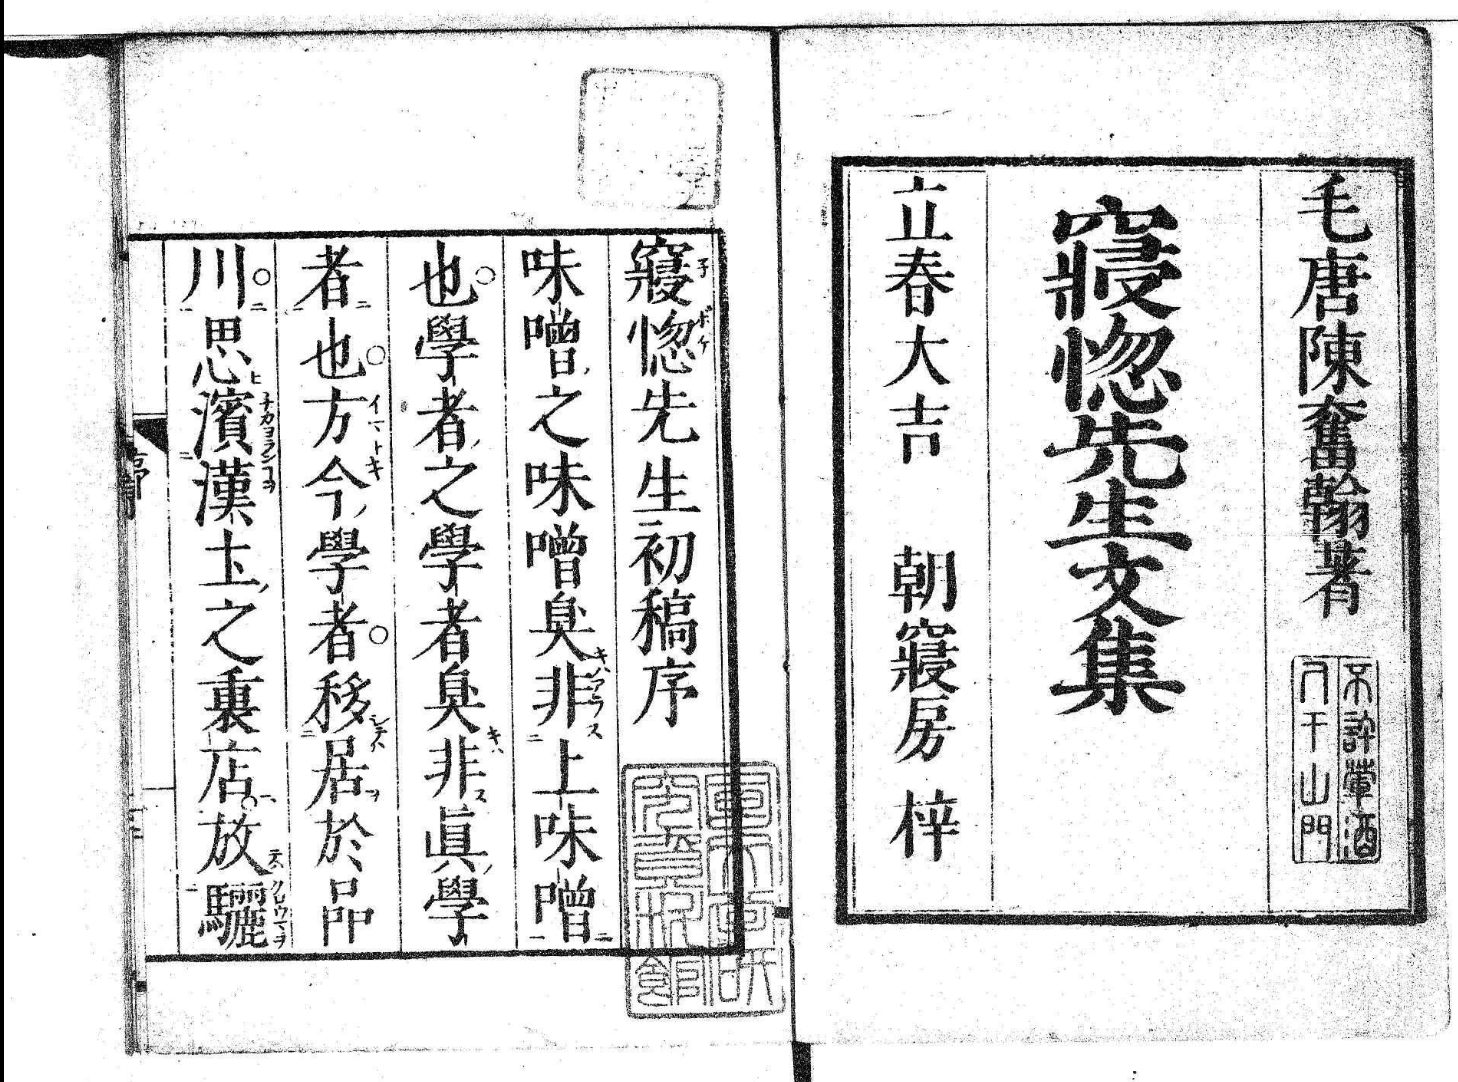 毛唐陳奮翰著
不許葷酒
入于山門
寢惚先生文集
立春大吉 朝寢房 梓
寢惚先生初稿序
味噌之味噌臭非上味噌
也學者之學者臭非眞學
者也方今學者移居於品
川思濱漢𡈽之裏店放驪
序